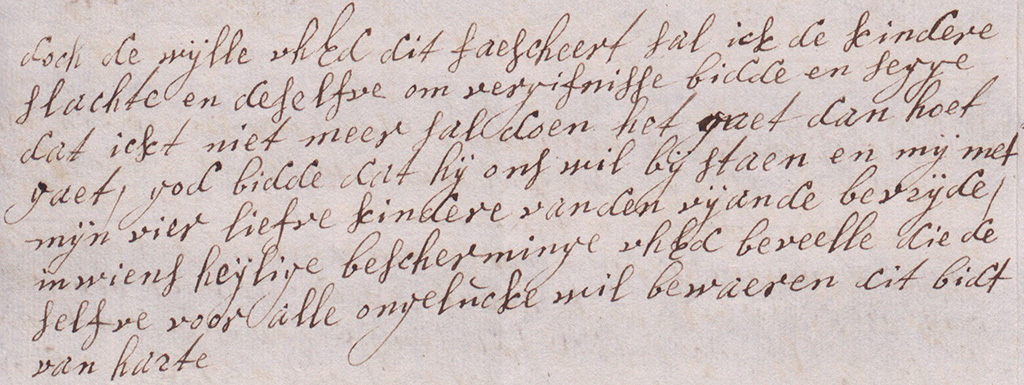 doch de wijlle vhEd dit faescheert sal ick de kindere
slachte en deselfve om vergifnisse bidde en segge
dat ickt niet meer sal doen het gaet dan hoet
gaet, god bidde dat hij ons wil bij staen en mij met
mijn vier liefve kindere vanden vijande bevrijde,
in wiens heijlige bescherminge vhEd beveelle die de
selfve voor alle ongelucke wil bewaeren dit bidt
van harte